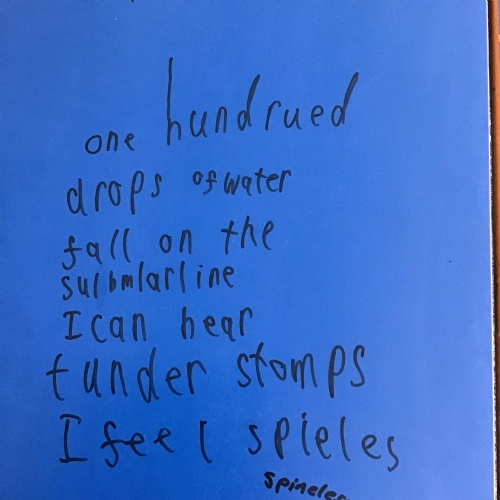 one hundrued
drops of water
fall on the
sulbmlarline
I can hear
tunder stomps
I feel spieles